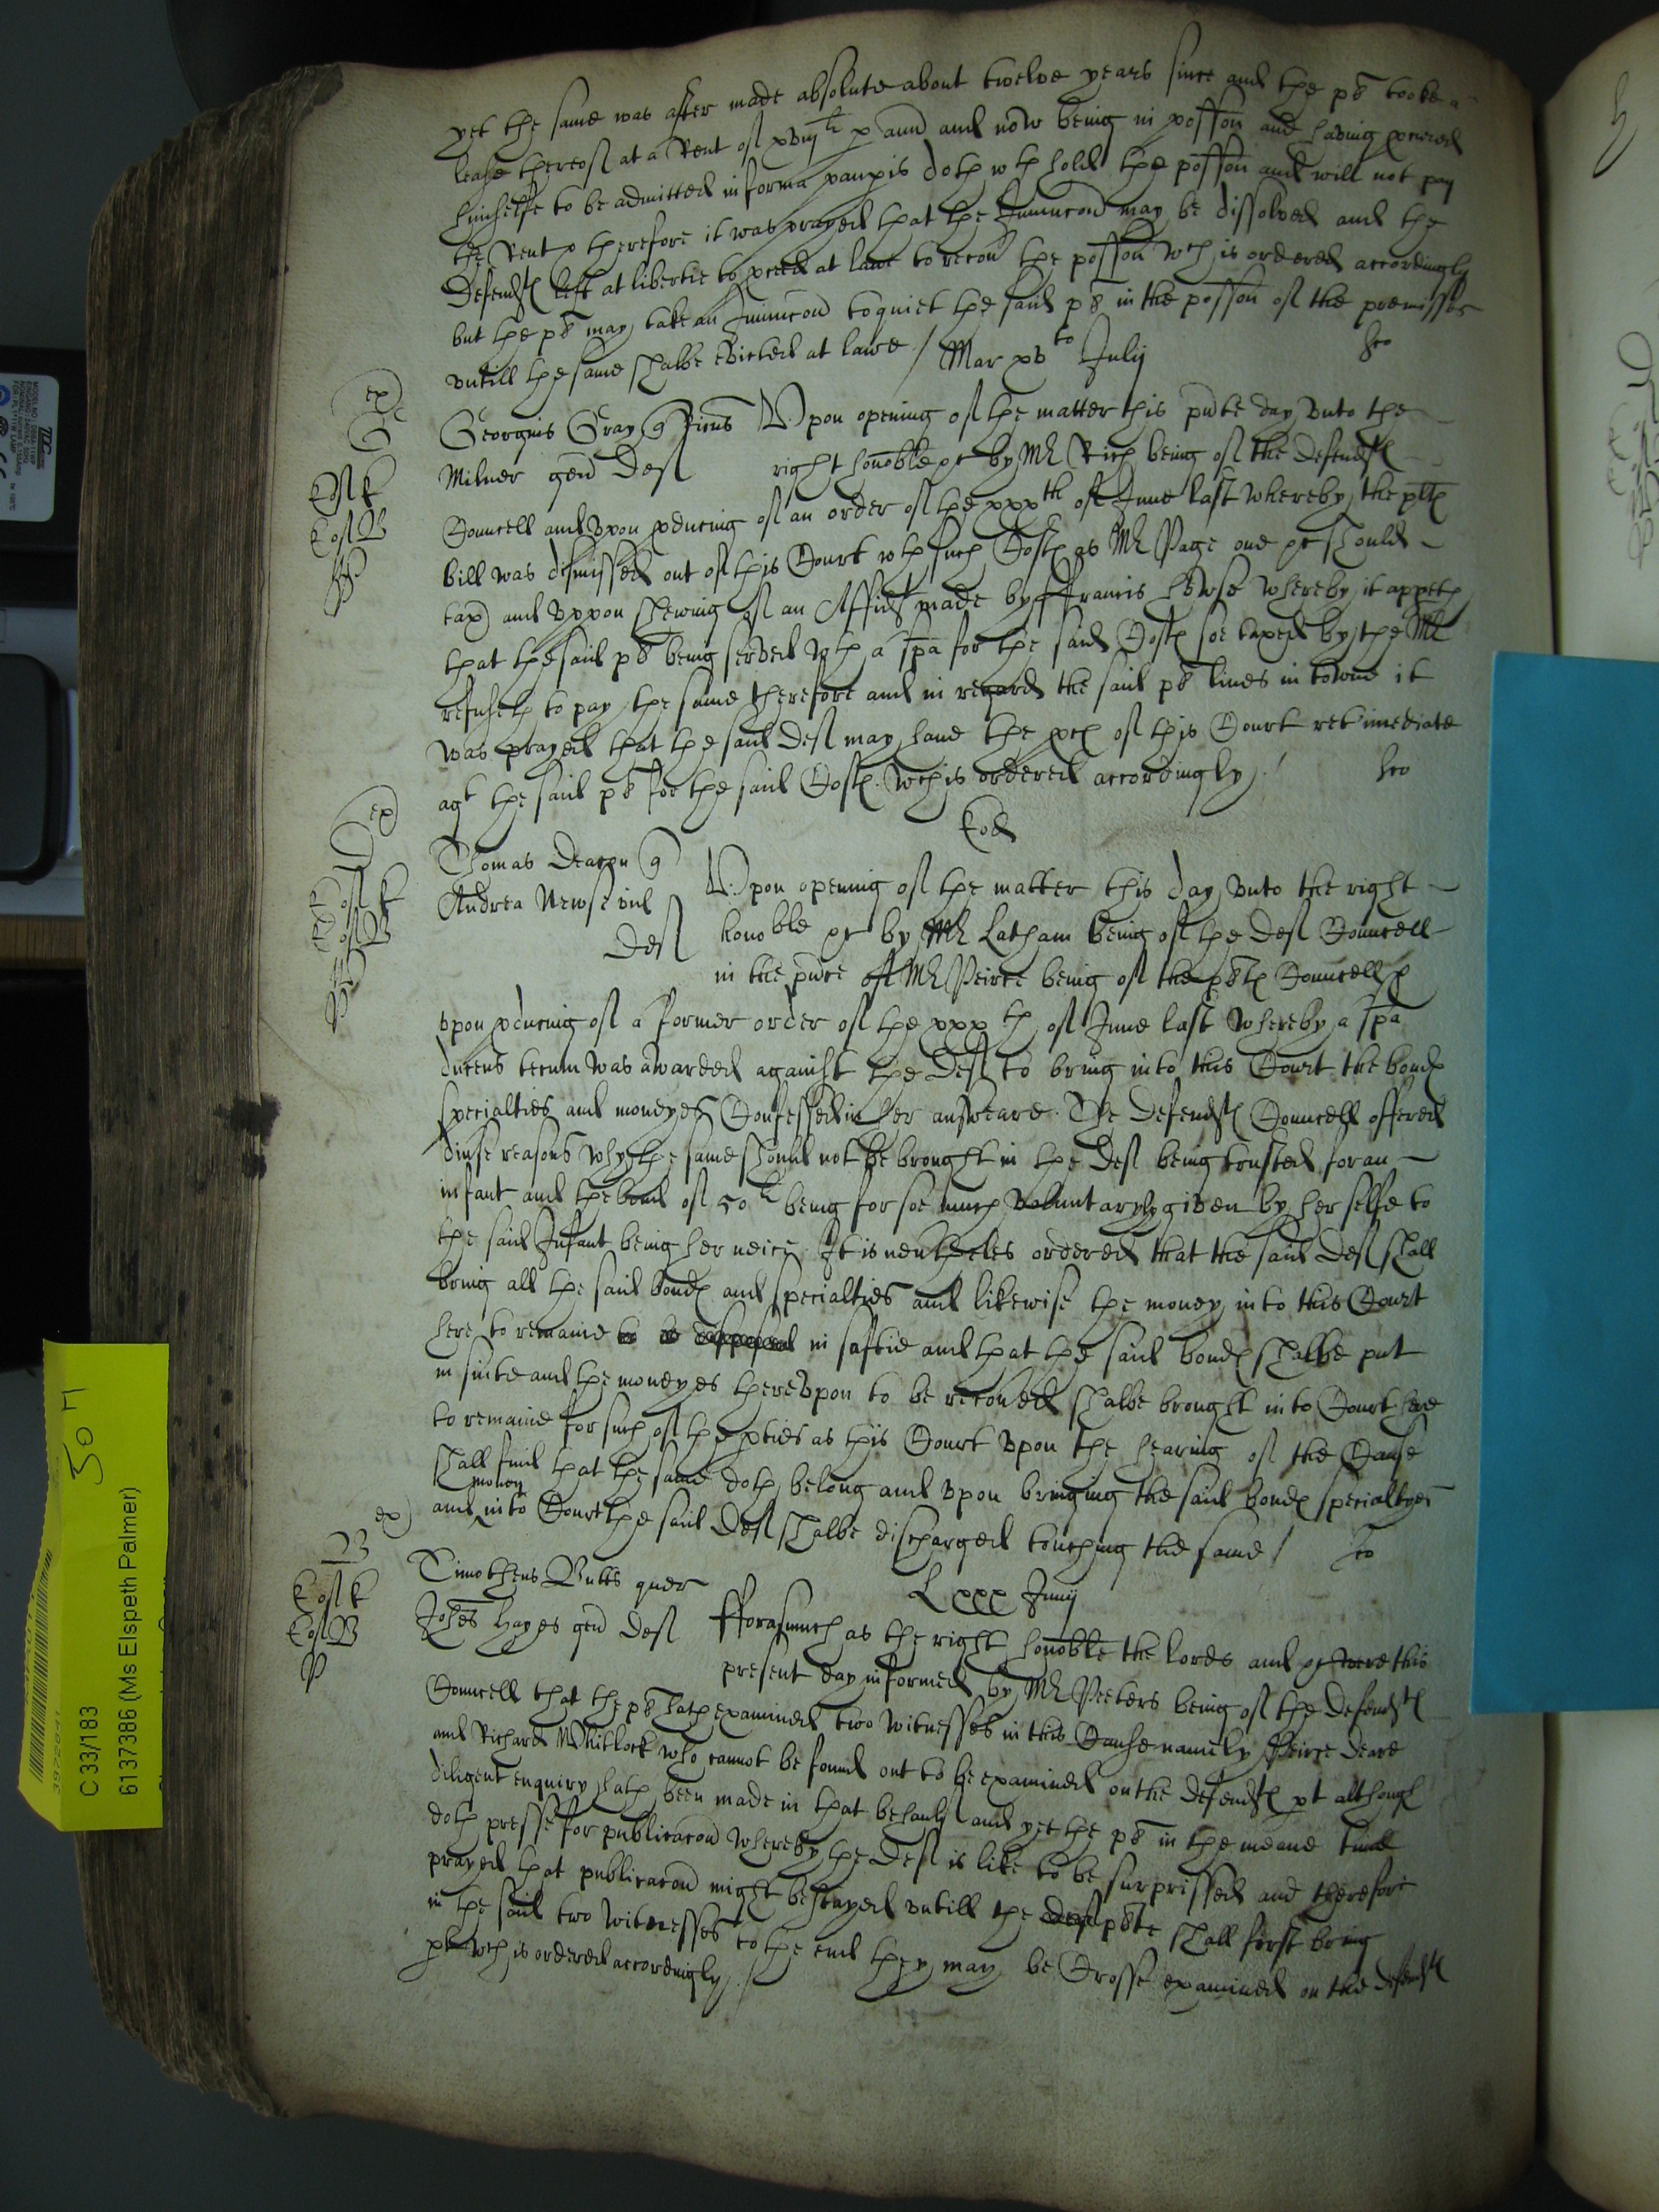 yet the same was after made absolute about twelve years since and the pl tooke a
lease thereof at a Rent of xviij li p ann and now being in possion and having pcured
himselfe to be admitted in forma paupis doth wth hold the possion and will not pay
the Rent therefore it was prayed that the Iniunccon may be dissolved and the
Defendts left at libertie to pceed at lawe to recou the possion wch is ordered accordingly
but the pl may take an Iniunccon to quiet the said pl in the possion of the premisses
vntill the same shalbe evicted at lawe / Mar xv to July
Georgius Gray q Vpon opening of the matter this pnte day vnto the
Milner gen Def right honoble pt by Mr Rich being of the Defendts
Councell and vpon pducing of an order of the xxxth of June last whereby the plts
bill was dismissed out of this Court wth such Costs as Mr Page one pt should
tax and vppon shewing of an Affidt made by ffrancis whereby it appeth
that the said pl being served wth a spa for the said Costs soe taxed by the Mr
refuseth to pay the same therefore and in regard the said pl lives in towne it
was prayed that the said Def may have the pces of this Court ret imediate
agt the said pl for the said Costs. wch is ordered accordingly /
Eod
Thomas Deacon q
Andrea Newse vid Vpon opening of the matter this day vnto the right
Def honoble pt by Mr Latham being of the Def Councell
in the pnce of Mr Peirce being of the plts Councell
vpon pducing of a former order of the xxxth of June last whereby a spa
ducens tecum was awarded against the Def to bring into this Court the bonds
specialties and moneyes Confessed in her answeare. The Defendts Councell offered
divse reasons why the same should not be brought in the Def being trusted for an
infant and the bond of 50 li being for soe much voluntaryly given by her selfe to
the said Infant being her neice. It is neutheles ordered that the said Def shall
bring all the said bonds and specialties and likewise the money into this Court
here to remaine in saftie and that the said bonds shalbe put
in suite and the moneyes therevpon to be recoued shalbe brought into Court here
to remaine for such of the pties as this Court vpon the hearing of the Cause
shall find that the same doth belong and vpon bringing the said bonds specialtyes
money
and into Court the said Def shalbe discharged touching the same /
L xxx Junij
Timotheus Butts quer
Johes Hayes gen Def fforasmuch as the right honoble the lords and pt were this
present day informed by Mr Peeters being of the Defendts
Councell that the pl hath examined two witnesses in this Cause namely Peirce Deare
and Richard Whitlock who cannot be found out to be examined on the Defendts pt although
diligent enquiry hath been made in that behaulf and yet the pl in the meane time
doth presse for publicacon whereby the Def is like to be surprissed and therefore
prayed that publicacon might be stayed vntill the plte shall first bring
in the said two witnesses to the end they may be Crosse examined on the Defendts
pt wch is ordered accordingly /
C 33/183
6137386 (Ms Elspeth Palmer)